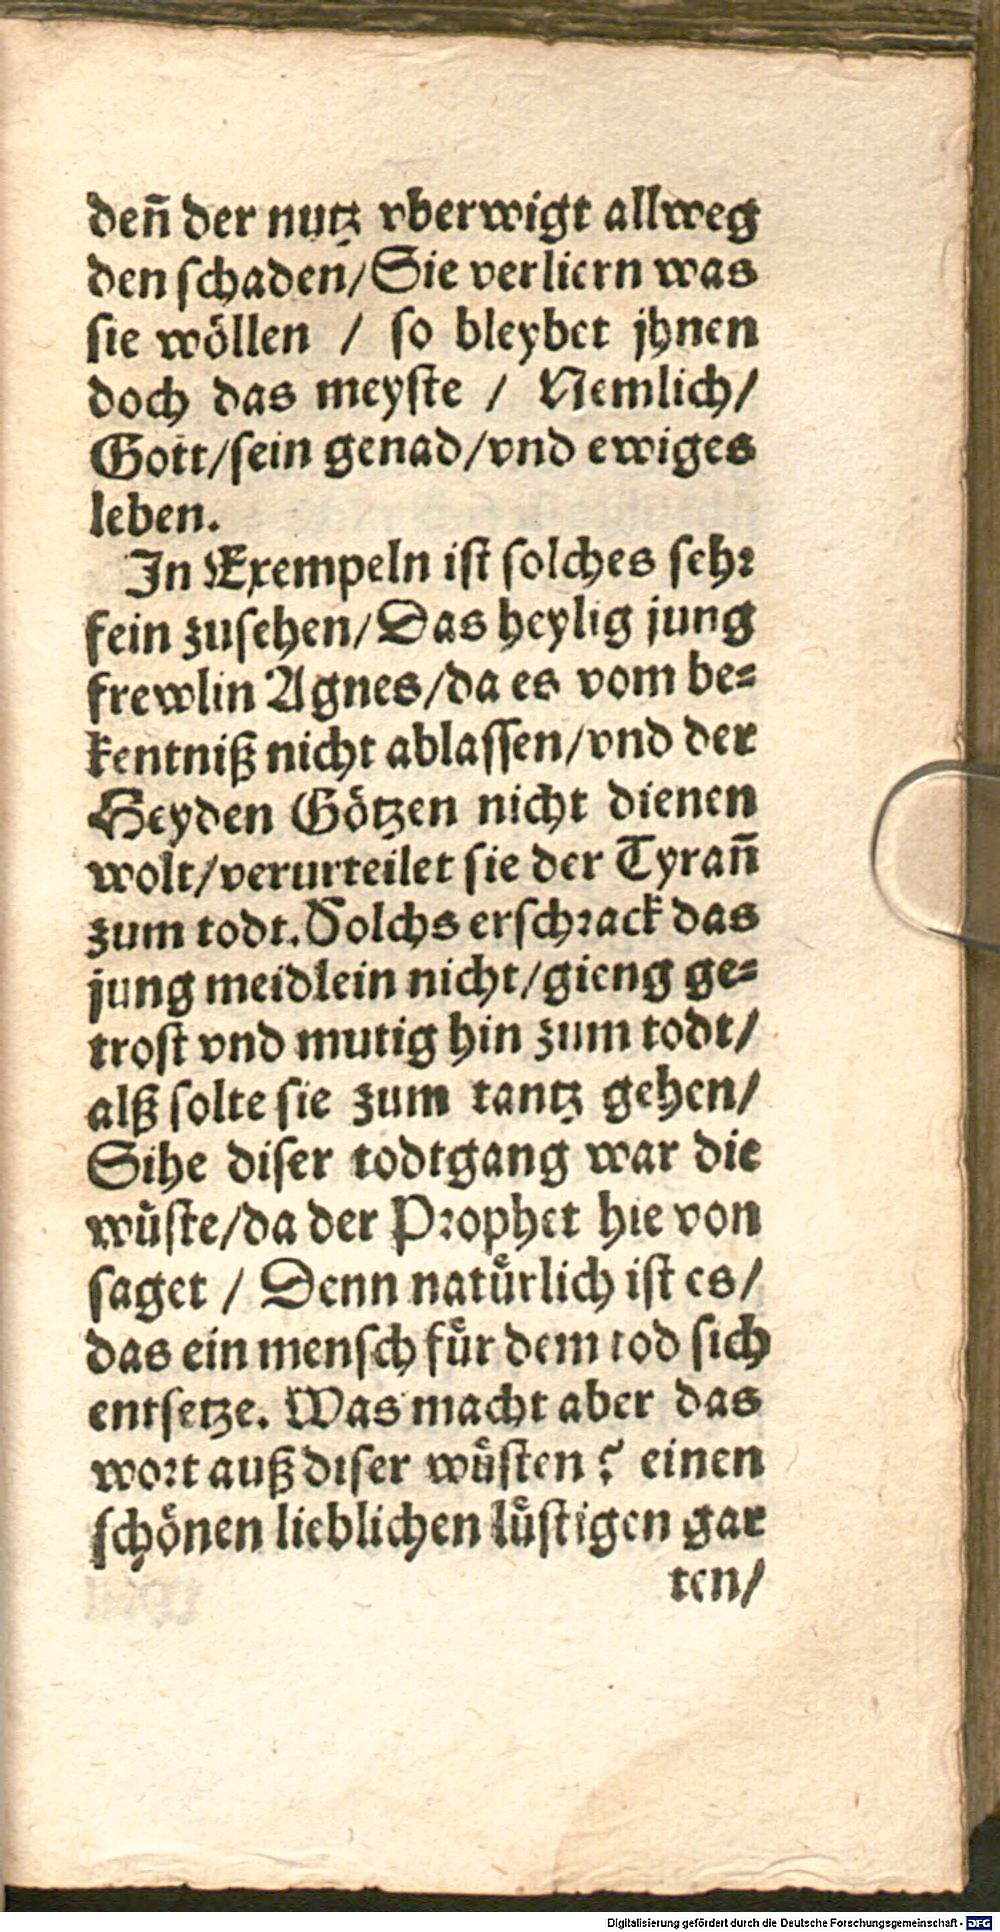 deñ der nutz vberwigt allweg
den schaden/Sie verliern was
sie wöllen / so bleybet jhnen
doch das meyste / Nemlich/
Gott/sein genad/vnd ewiges
leben.
In Exempeln ist solches sehr
fein zusehen/Das heylig jung
frewlin Agnes/da es vom be-
kentniß nicht ablassen/vnd der
Heyden Götzen nicht dienen
wolt/verurteilet sie der Tyrañ
zum todt. Solchs erschrack das
jung meidlein nicht/gieng ge-
trost vnd mutig hin zum todt/
alß solte sie zum tantz gehen/
Sihe diser todtgang war die
wüste/da der Prophet hie von
saget / Denn natürlich ist es/
das ein mensch für dem tod sich
entsetze. Was macht aber das
wort auß diser wüsten? einen
schönen lieblichen lüstigen gar
ten/
Digitalisierung gefördert durch die Deutsche Forschungsgemeinschaft - DFG